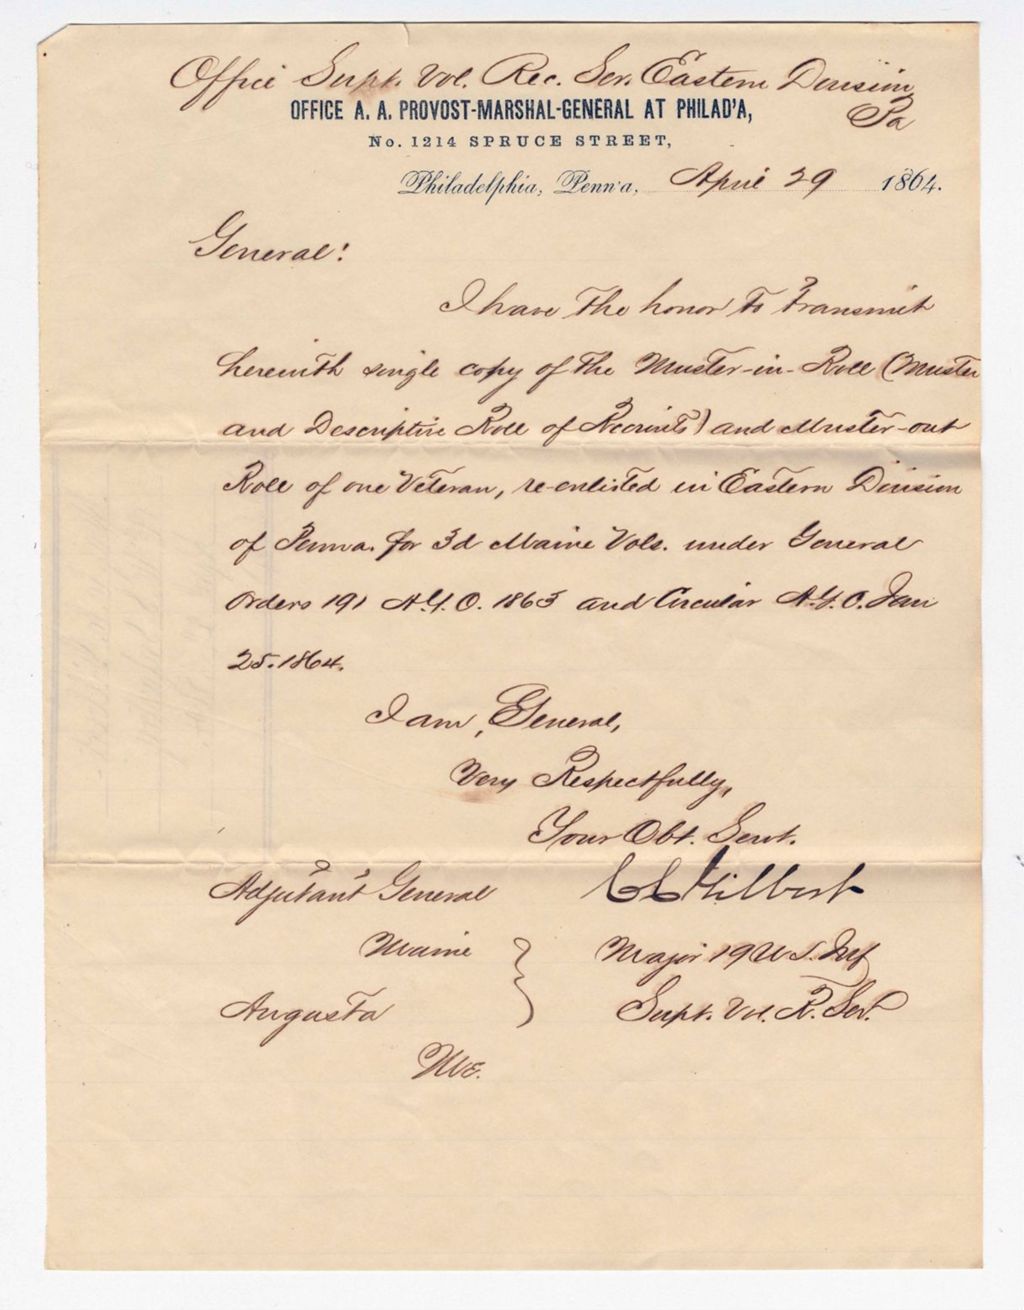 Office Supt. Vol. Rec. Ser. Eastern Division
Pa
OFFICE A. A. PROVOST-MARSHAL-GENERAL AT PHILAD'A,
No. 1214 SPRUCE STREET,
Philadelphia, Penn'a, April 29 1864.
General!
I have the honor to transmit
herewith single copy of the Muster-in-Roll (Muster
and Descriptive Roll of Recruits) and Muster-out
Roll of one Veteran, re-enlisted in Eastern Division
of Penna. for 3d Maine Vols. under General
Orders 191 A.G.O. 1863 and Circular A.G.O. Jan
25. 1864.
I am, General,
Very Respectfully,
Your Obt. Servt.
C C Gilbert
Major 19 U.S. Inf
Supt. Vol. R. Ser.
Adjutant General
Maine
Augusta
Me.